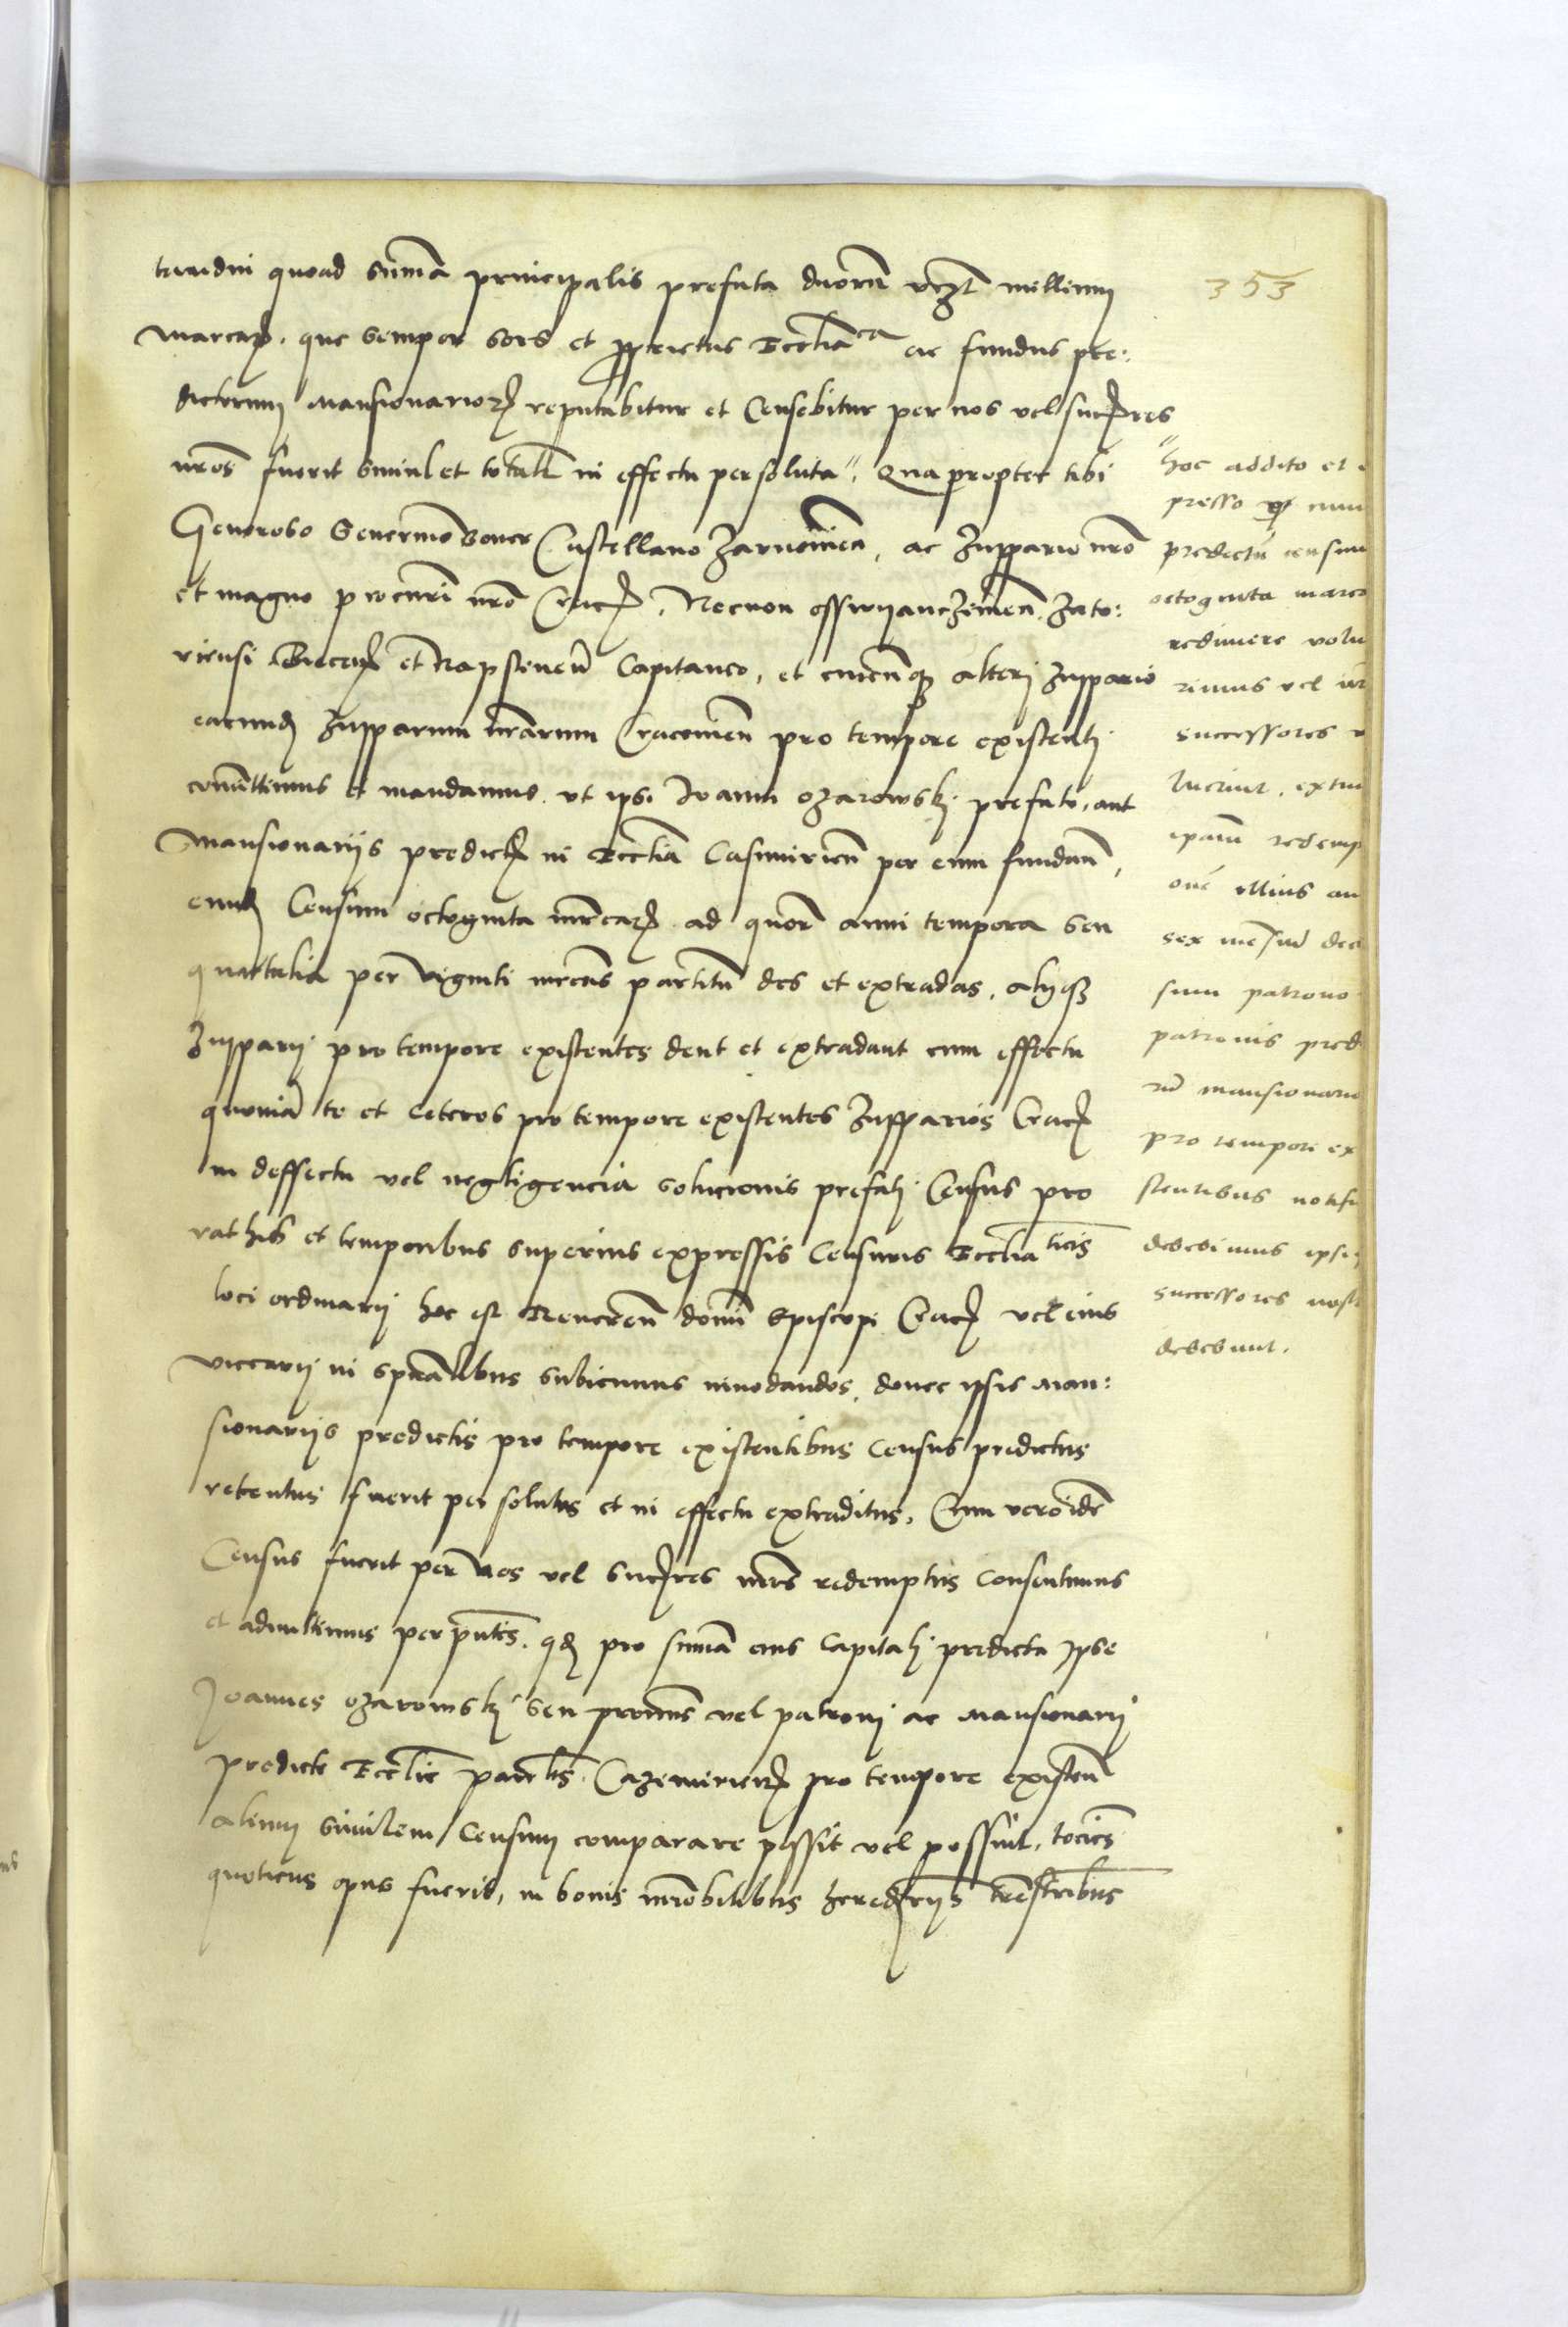 353
tamdiu quoad sum̄a principalis prefata duorū vcʒt millium
marcaꝝ. que semper sors et ꝓprietas Eccl̄iaca ac fundus pre:
dictorum mansionarioꝝ reputabitur et Censebitur per nos vel succ̄res
nr̄os fuerit simul et total̄r in effectu persoluta", Quapropter tibi
Generoso Severino Boner Castellano Zarnowien̄, ac Zuppario nr̄o
et magno procur̄i nr̄o Crac̄, Necnon osswyanczimen̄. Zato:
riensi Biecen̄ et Rapstenen̄ Capitaneo, et cuicunqʒ alteri Zuppario
earund̄ Zupparum nr̄arum Cracovien̄ pro tempore existenti
com̄ittimus et mandamus. vt ipsi Ioanni ozarowski prefato, aut
Mansionariis predict̄ in Eccl̄ia Casimirien̄ per eum fundan̄,
eund̄ Censum octoginta mr̄caꝝ ad quor̄ anni tempora seu
quartalia per viginti mrcas partitim des et extradas, alijqʒ
Zupparij pro tempore existentes dent et extradant cum effectu
quoniā te et ceteros pro tempore existentes Zupparios Crac̄
in deffectu vel negligencia solucionis prefati Census pro
rathis et temporibus superius expressis Censuris Eccl̄iaticis
loci ordinarij hoc est Reueren̄ domī Episcopi Crac̄ vel eius
viccarij in sp̄ualibus subicimus innodandos, donec ipsis Man:
sionariis predictis pro tempore existentibus Census predictus
retentus fuerit persolutus et in effectu extraditus, Cum vero idē
Census fuerit per Nos vel succ̄res nr̄os redemptus Consentimus
et admittimus per pn̄tes. qd̄ pro sum̄a eius Capitali predicta Ipse
Joannes ozarowski seu proximus vel patroni ac Mansionarij
predicte Eccl̄ie paroch̄lis Cazimirien̄ pro tempore existen̄
alium similem Censum comparare possit vel possint, tocies
quoticus opus fuerit, in bonis im̄obilibus hered̄riis terrestribus
"hoc addito et
presso ꝙ cum
predictū censum
octoginta marca
redimere volu
rimus vel
successores
luerint, extunc
ipsam redemp
onē illius an
sex
sum patrono
patronis pred
mansionario
pro tempore ex
stentibus notifi
debebimus ipsi
successores nostr
debebunt.